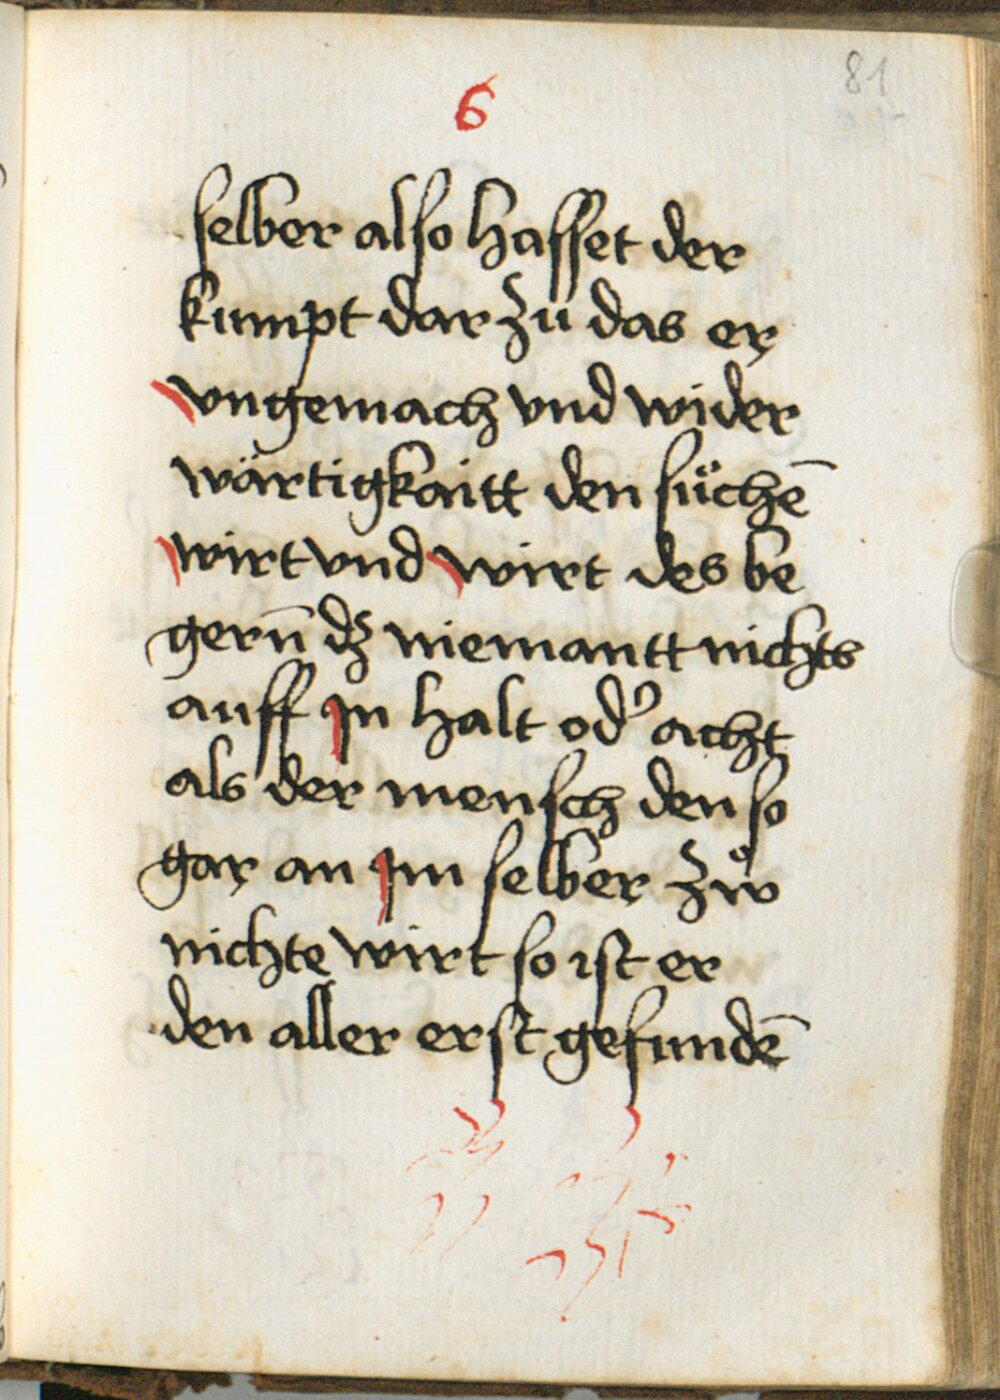 81
6
selber also hasset der
kumpt dar zü das er
vngemach vnd wider
wärtigkaitt den süchē
wirt vnd wirt des be
gern̄ dz niemantt nichts
auff In halt od' acht
als der mensch den so
gar an Im selber zwͦ
nichte wirt so ist er
den aller erst gefundē